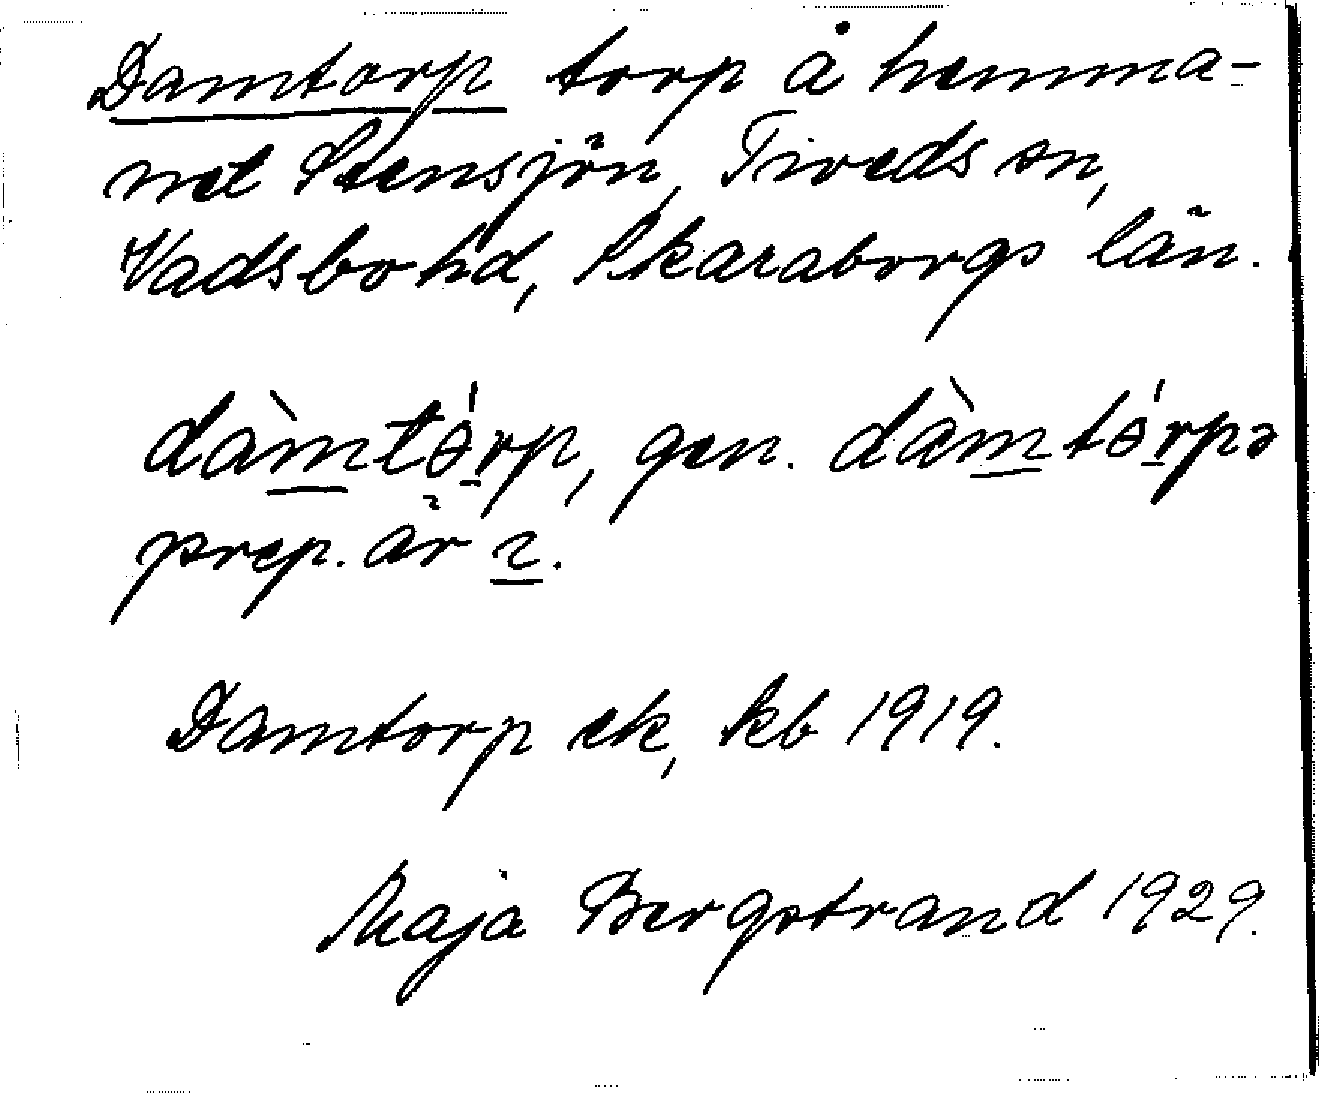 Damtorp torp å hemma-
net Stensjön, Tiveds sn,
Vadsbo hd, Skaraborgs län.
dàmtɵ́rp, gen. dàmtɵ́rpə
prep. är ɩ.
Damtorp ek, kb 1919.
Maja Bergstrand 1929.